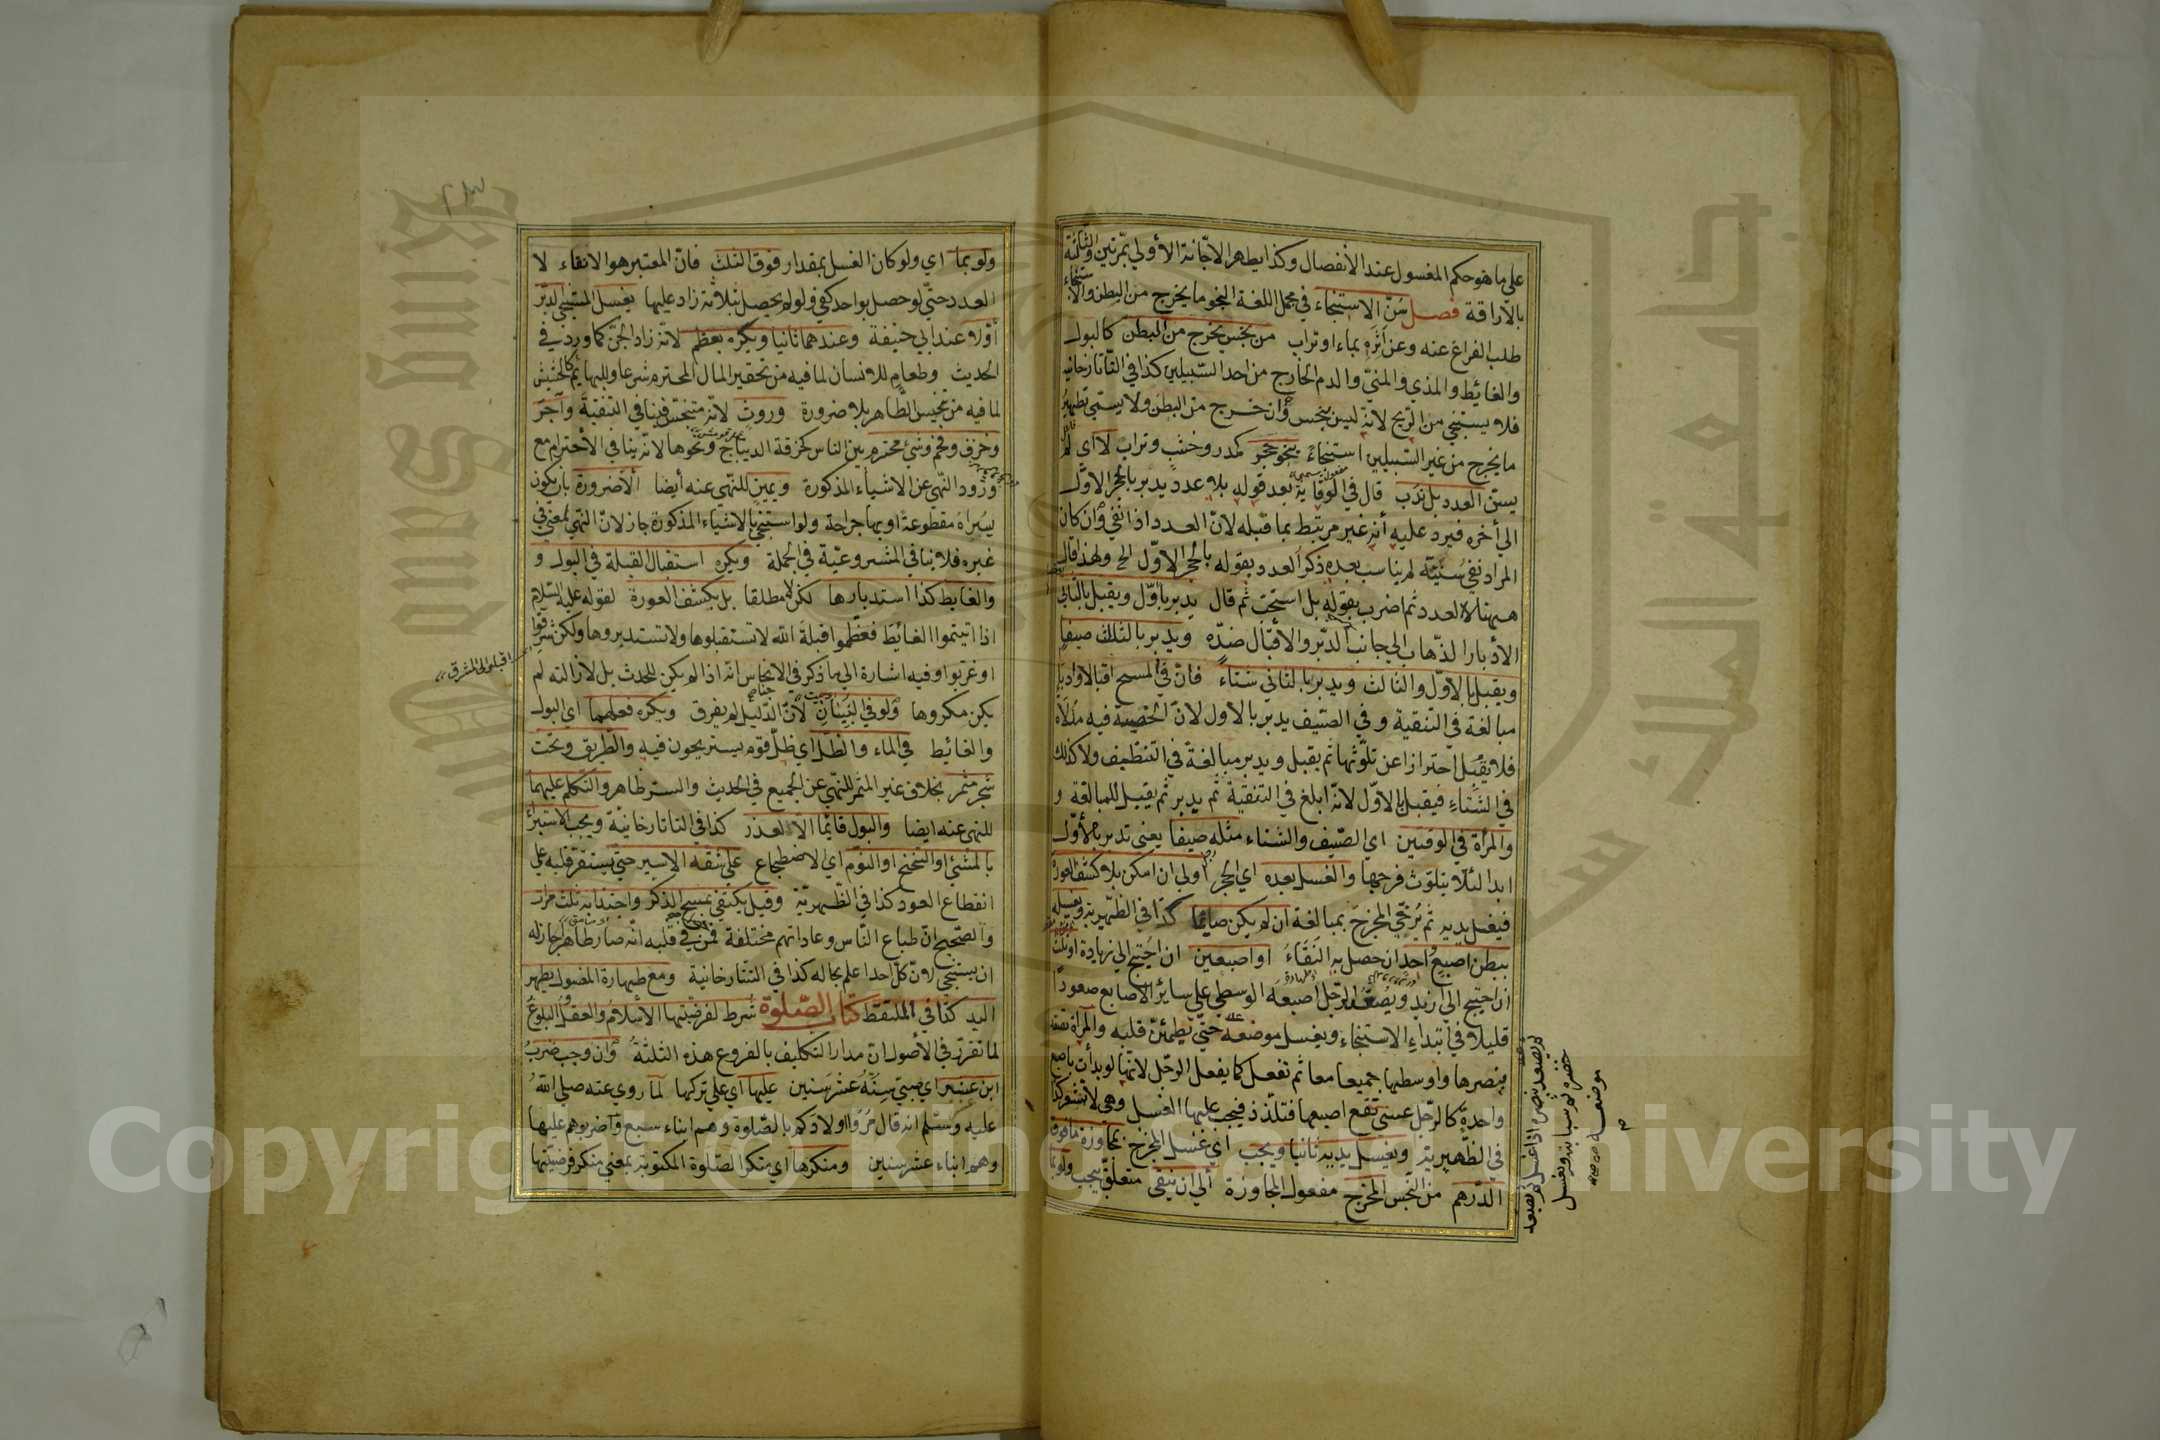 على ما هو حكم المغسول عند الانفصال وكذا يطهر الاجّانة الأولى بمرتين والثالثة
بالاراقة فصل سُنّ الاستنجاء في مجمل اللغة النجو ما يخرج من البطن والاستنجاء
طلب الفراغ عنه وعن أثره بماء او تراب من نجس يخرج من البطن كالبول
والغائط والمذي والمنيّ والدم الخارج من احد السّبيلين كذا في التاتارخانيه
فلا يستنجي من الرّيح لانّه ليس بنجس وان خرج من البطن ولا يسمى تطهير
ما يخرج من غير السّبيلين استنجاءً بنحو حجر كمدر وخشب وتراب لا اى لم
يسنّ العدد بل ندب قال في الوقاية بعد قوله بلا عدد يدبر بالحجر الاوّل
الى أخره فيرد عليه أنه غير مرتبط بما قبله لانّ العدد اذا نفي وان كان
المراد نفي سُنيّته لم يناسب بعده ذكر العدد بقوله بالحجر الاوّل الخ ولهذا قال
ههنا لا العدد ثم اضرب بقوله بل استحب ثم قال يدبر باوّل ويقبل بالثاني
الأدبار الذّهاب الى جانب الدّبر والأقبال ضدّه ويدبر بالثلث صيفا
ويقبل بالاوّل والثالث ويدبر بالثاني شتاءً فانّ في المسح اقبالا وادبارا
مبالغة في التنقية وفي الصّيف يدبر بالاول لانّ الخصية فيه مدلاة
فلا يقبل احترازا عن تلوّثها ثم يقبل ويدبر مبالغة في التنظيف ولا كذلك
في الشّتاء فيقبل بالاوّل لانّه ابلغ في التنقية ثم يدبر ثم يقبل للمبالغة و
والمرأة في الوقتين اي الصّيف والشتاء مثله صيفا يعنى تدبر بالأوّل
ابدا لئلّا يتلوّث فرجها والغسل بعده اي الحجر اولى ان امكن بلا كشف العورة
فيغسل يديه ثم يرخي المخرج بمبالغة ان لم يكن صائما كذا في الظهيرية ويغسله
ببطن اصبع واحد ان حصل به النقاء او اصبعين ان احتيج الى زيادة او ثلث
ان احتيج الى ازيد ويصعّد الرّجل اصبعه الوسطى على سائر الاصابع صعودا
قليلا في ابتداء الاستنجاء ويغسل موضعه حتّى يطمئنّ قلبه والمرأة تصعد
بنصرها واوسطها جميعا معا ثم تفعل كما يفعل الرجّل لانّها لو بدأت باصبع
واحدة كالرّجل عسى تقع اصبعها فتلذّذ فيجب عليها الغسل وهي لا تشعر كذا
في الظّهيرية ويغسل يديه ثانيا ويجب اي غسل المخرج بمجاوزة ما فوق
الدّرهم من النّجس المخرج مفعول المجاوزة الى ان ينقى متعلّق بيجب ولو بما
موضعه
ولو بما اي ولو كان الغسل بمقدار فوق الثلث فانّ المعتبر هو الانقاء لا
العدد حتّى لو حصل بواحد كفى ولو لم يحصل بثلاثة زاد عليها يغسل المستنجي الدبر
أوّلا عند ابي حنيفة وعندهما ثانيا ويكره بعظم لانّه زاد الجنّ كما ورد في
الحديث وطعام للانسان لما فيه من تحقير المال المحترم شرعا وللبهايم كالحشيش
لما فيه من تنجيس الطّاهر بلا ضرورة وروث لانّه متنجّس فينافي التنقية وآجر
وخزف وفحم وشئ محترم بين الناس كخرقة الديباج ونحوها لانّه ينافي الأحترام مع
ورود النّهي عن الاشياء المذكورة ويمين للنّهي عنه أيضا الّا ضرورة بان يكون
يسراه مقطوعة او بها جراحة ولو استنجي بالاشياء المذكورة جاز لانّ النّهي لمعنى في
غيره فلا ينافي المشروعيّة في الجملة ويكره استقبال القبلة في البول و
والغايط كذا استدبارها لكن لا مطلقا بل بكشف العورة لقوله عليه السّلام
اذا اتيتموا الغائط فعظّموا قبلة الله لا تستقبلوها ولا تستدبروها ولكن شرّقوا
او غرّبوا وفيه اشارة الى ما ذكر في الانجاس انّه اذا لم يكن للحدث بل لازالته لم
اقبلوا الى المشرق
يكن مكروها ولو في البنيان لأنّ الدّليل لم يفرق ويكره فعلهما اي البول
والغائيط في الماء والظّل اي ظلّ قوم يستريحون فيه والطّريق وتحت
شجر مثمر بخلاف غير المثمر للنّهي عن الجميع في الحديث والستر ظاهر والتّكلم عليهما
للنهي عنه ايضا والبول قائما الّا لعذر كذا في التاتارخانية ويجب الاستبراء
بالمشيّ او التنحنح او النوم اي الاضطجاع على شقه الايسر حتّى يستقرّ قلبه على
انقطاع العود كذا في الظّهيريّة وقيل يكتفي بمسح الذكر واجتذابه ثلث مرّات
والصّحيح انّ طباع النّاس وعاداتهم مختلفة فمن في قلبه انّه صار طاهرا جاز له
ان يستنجي لانّ كلّ احد اعلم بحاله كذا في التتارخانية ومع طهارة المغسول يطهر
اليد كذا في الملتقط كتاب الصّلوة شرط لفرضيّتها الأسلام والعقل والبلوغ
لما تقرّر في الأصول انّ مدار التكليف بالفروع هذه الثلثة وان وجب ضربُ
ابن عشر اي صبيّ سِنُّهُ عشر سَنين عليها اي على تركها لما روي عنه صلى الله
عليه وسلّم انّه قال مُرُوا اولادكم بالصّلوة وهم ابناء سبع واضربوهم عليها
وهم ابناء عشر سنين ومنكرها اي منكر الصّلوة المكتوبة بمعنى منكر فرضيّتها
Copyright © King Saud University